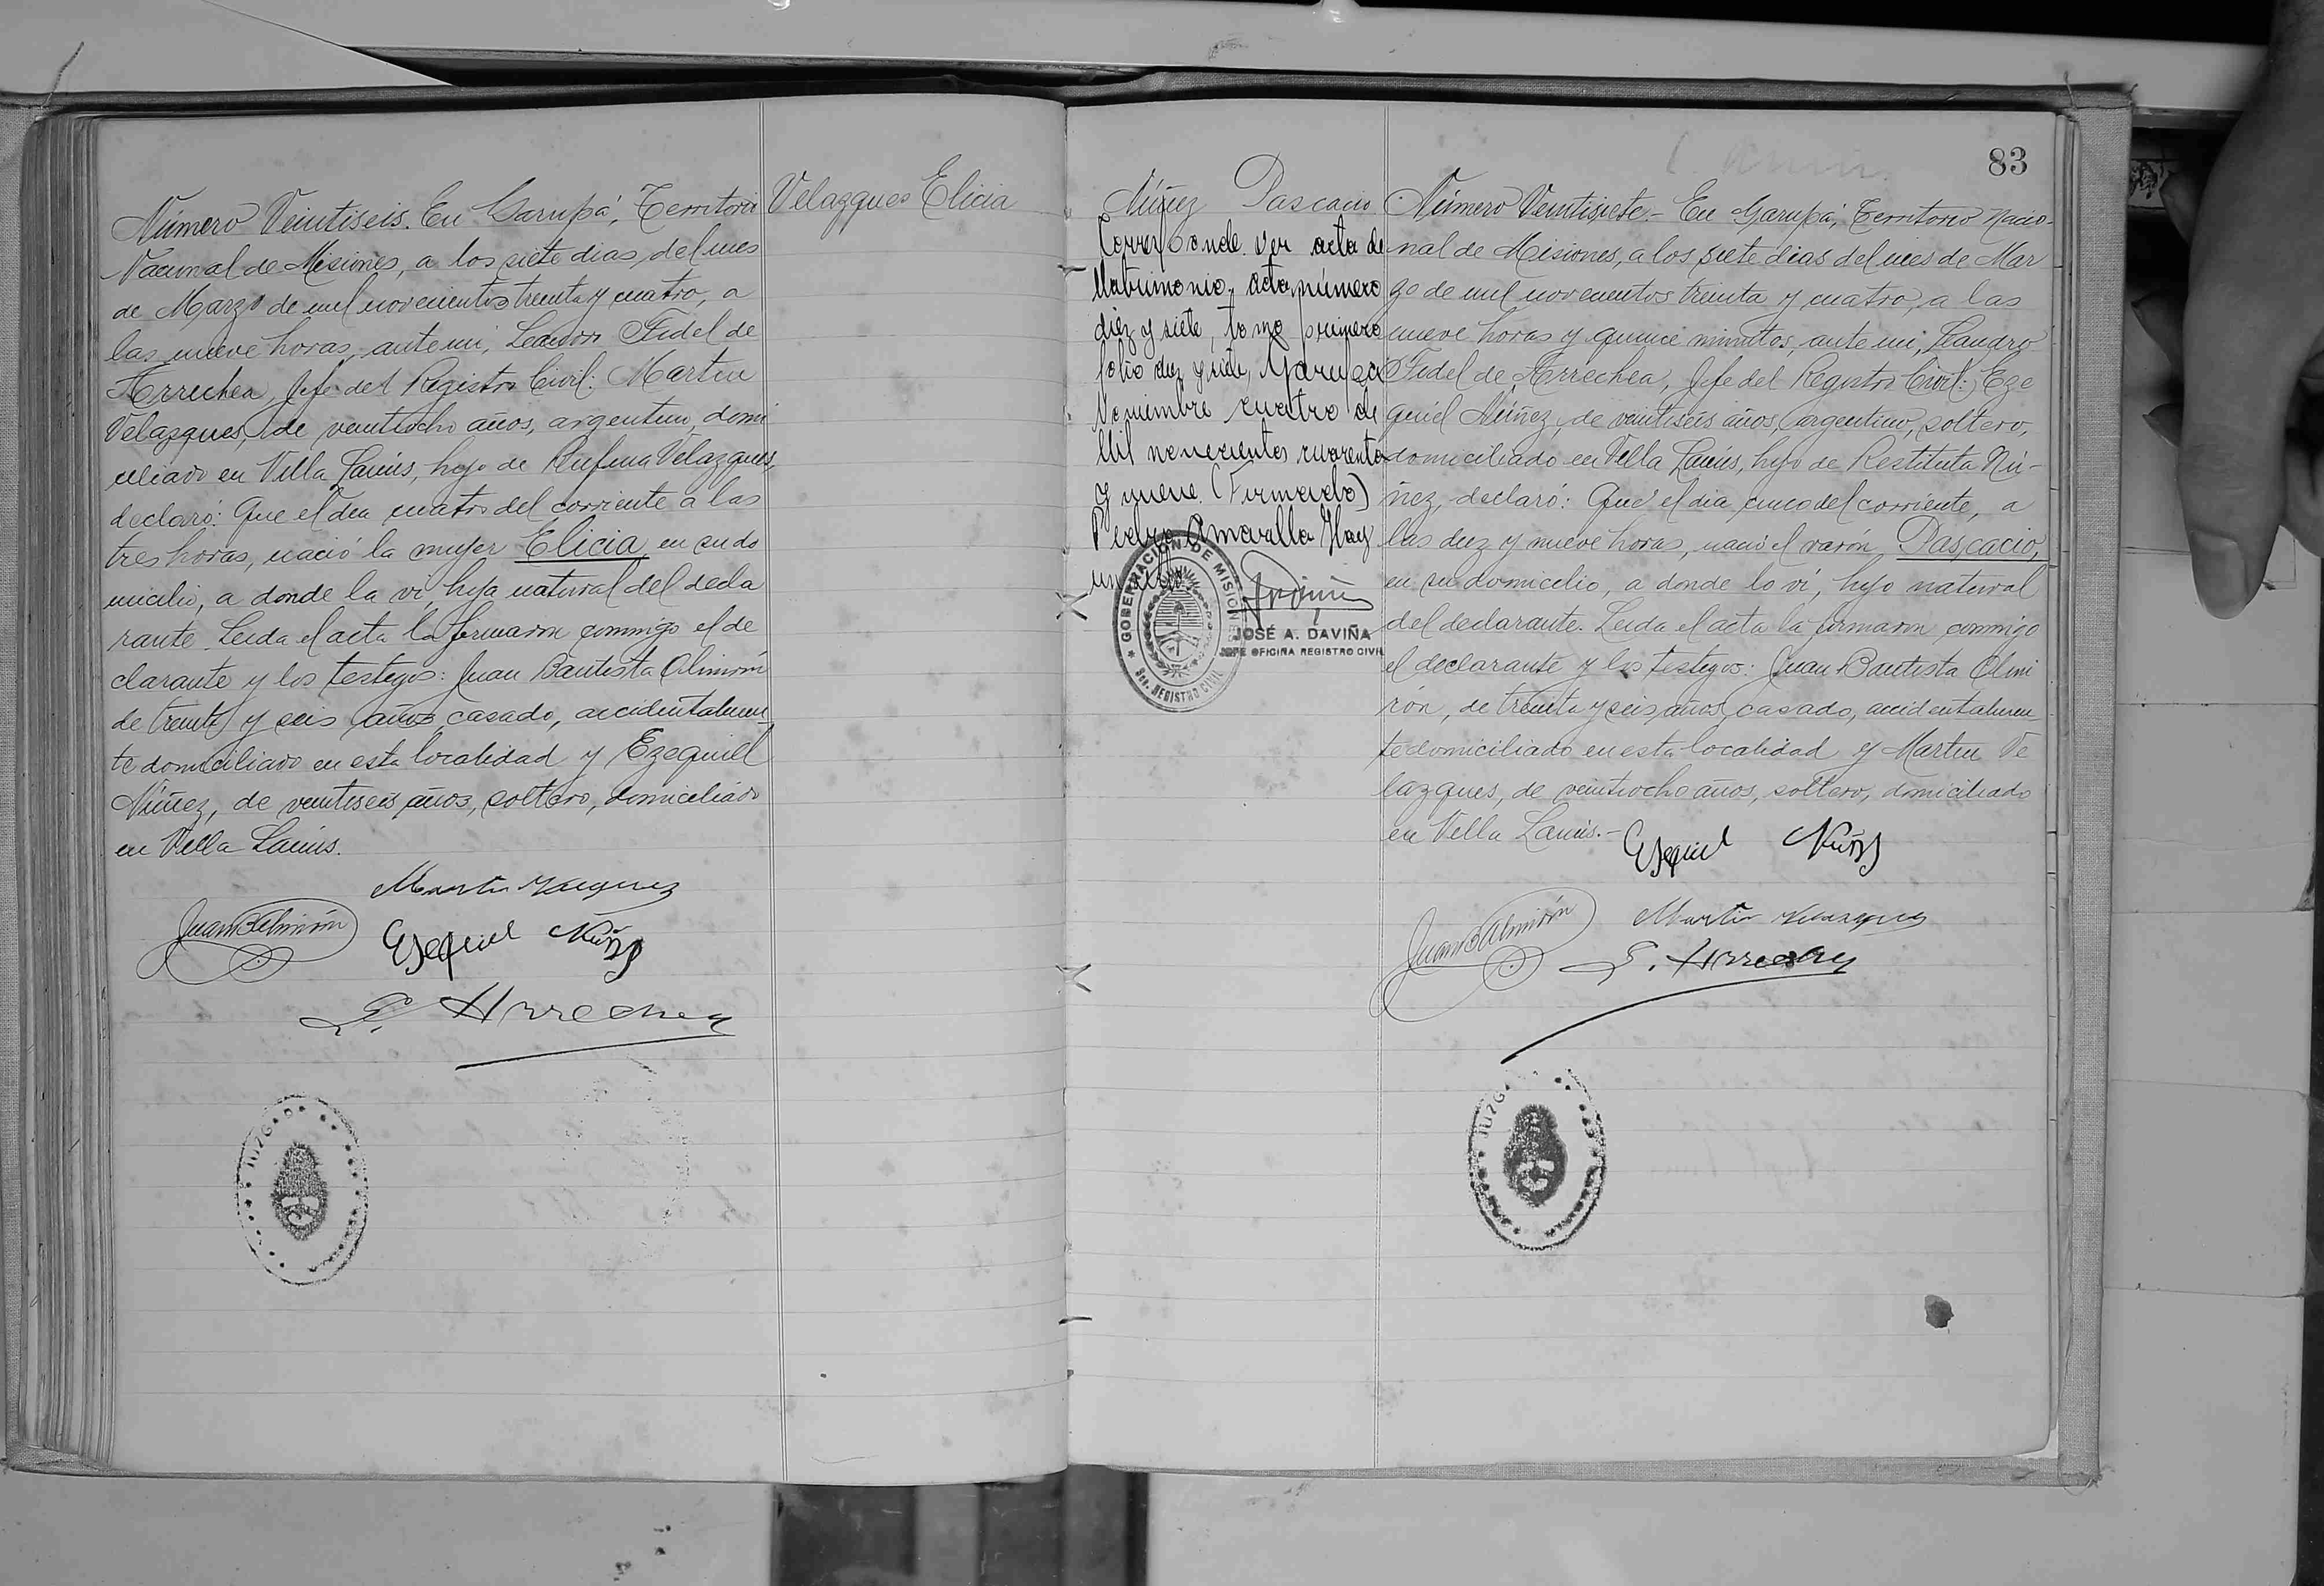 Número Veintiseis. En Garupá, Territorio
Nacional de Misiones, a los siete dias del mes
de Marzo de mil novecientos treinta y cuatro, a
las nueve horas, ante mi, Leandro Fidel de
Arrechea, Jefe del Registro Civil: Martin
Velazques, de veintiocho años, argentino, domi
ciliado en Villa Lanús, hijo de Rufina Velazques,
declaró: Que el dia cuatro del corriente a las
tres horas, nació la mujer Elicia en su do
micilio, a donde la vi, hija natural del decla
rante. Leida el acta la firmaron conmigo el de
clarante y los testigos: Juan Bautista Almirón
de treinta y seis años casado, accidentalmen
te domiciliado en esta localidad y Ezequiel
Núñez, de veintiseis años, soltero, domiciliado
en Villa Lanús.
Martin Velazquez
Juan B Almirón
Esequiel Núñez
L. Arrechea
JUZG
Velazques Elicia
83
Núñez Pascacio
Corresponde ver acta de
Matrimonio, acta número
diez y siete, tomo primero
folio diez y siete, Garupá
Noviembre cuatro de
Mil novecientos cuarenta
y nueve. (Firmado)
Pedro Amarilla Hay
un sello
GOBERNACION DE MISIONES
Sec. REGISTRO CIVIL
JOSÉ A. DAVIÑA
JEFE OFICINA REGISTRO CIVIL
Número Veintisiete.- En Garupá, Territorio Nacio-
nal de Misiones, a los siete dias del mes de Mar
zo de mil novecientos treinta y cuatro, a las
nueve horas y quince minutos, ante mi, Leandro
Fidel de Arrechea, Jefe del Registro Civil: Eze
quiel Núñez, de veintiseis años, argentino, soltero,
domiciliado en Villa Lanús, hijo de Restituta Nú-
ñez, declaró: Que el dia cinco del corriente, a
las diez y nueve horas, nació el varón, Pascacio,
en su domicilio, a donde lo vi, hijo natural
del declarante. Leida el acta la firmaron conmigo
el declarante y los testigos: Juan Bautista Almi
rón, de treinta y seis años, casado, accidentalmen
te domiciliado en esta localidad y Martin Ve
lazques, de veintiocho años, soltero, domiciliado
en Villa Lanús.-
Esequiel Núñez
Juan B Almirón
Martin Velazquez
L. Arrechea
JUZG